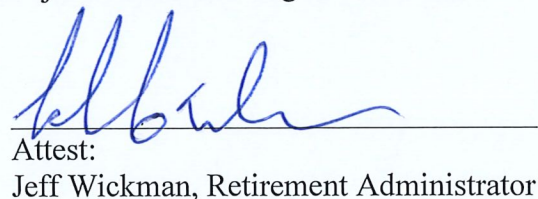 Attest:
Jeff Wickman, Retirement Administrator